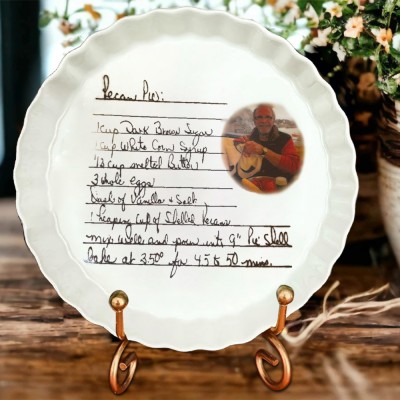 Pecan Pie:
1 cup Dark Brown Sugar
1 cup White Corn Syrup
1/2 cup melted Butter
3 whole eggs
Dash of Vanilla & Salt
1 heaping cup of Shelled Pecans
mix well and pour into 9" Pie Shell
bake at 350° for 45 to 50 mins.